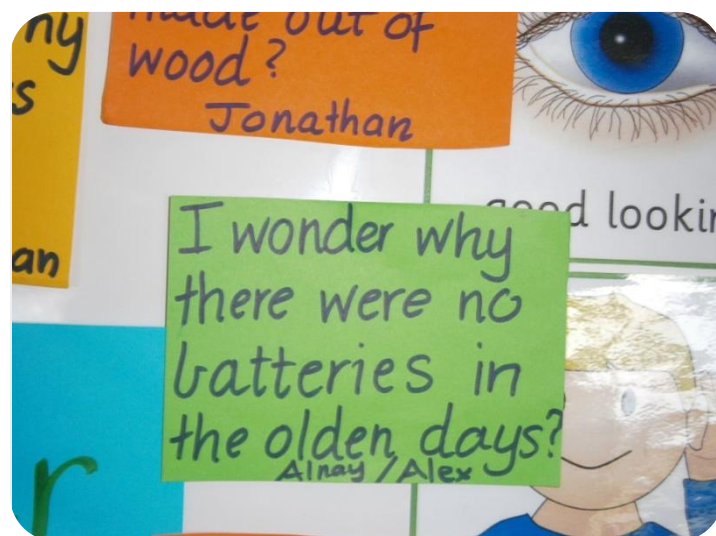 made out of
wood?
Jonathan
good looking
I wonder why
there were no
batteries in
the olden days?
Alnay / Alex
r